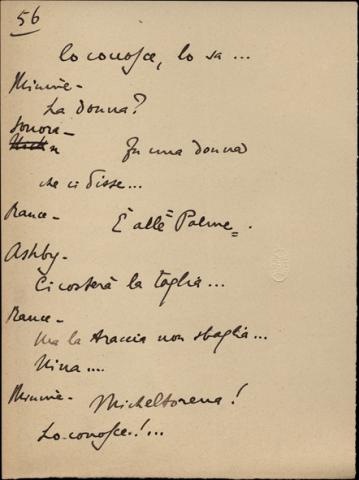 56
lo conosce, lo sa...
Minnie-
La donna?
Sonora-
Fu una donna
che ci disse...
Rance-
È alle "Palme".
Ashby-
Ci costerà la taglia...
Rance-
Ma la traccia non sbaglia...
Nina....
Minnie-
Micheltorena!
Lo conosce!...